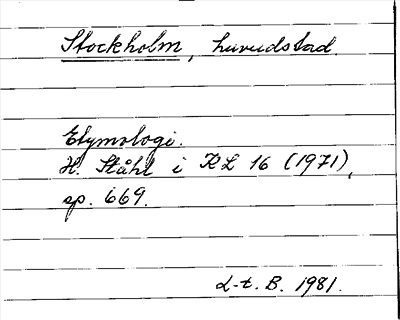 Stockholm, huvudstad.
Etymologi.
H. Ståhl i KL 16 (1971),
sp. 669.
L-t. B. 1981.